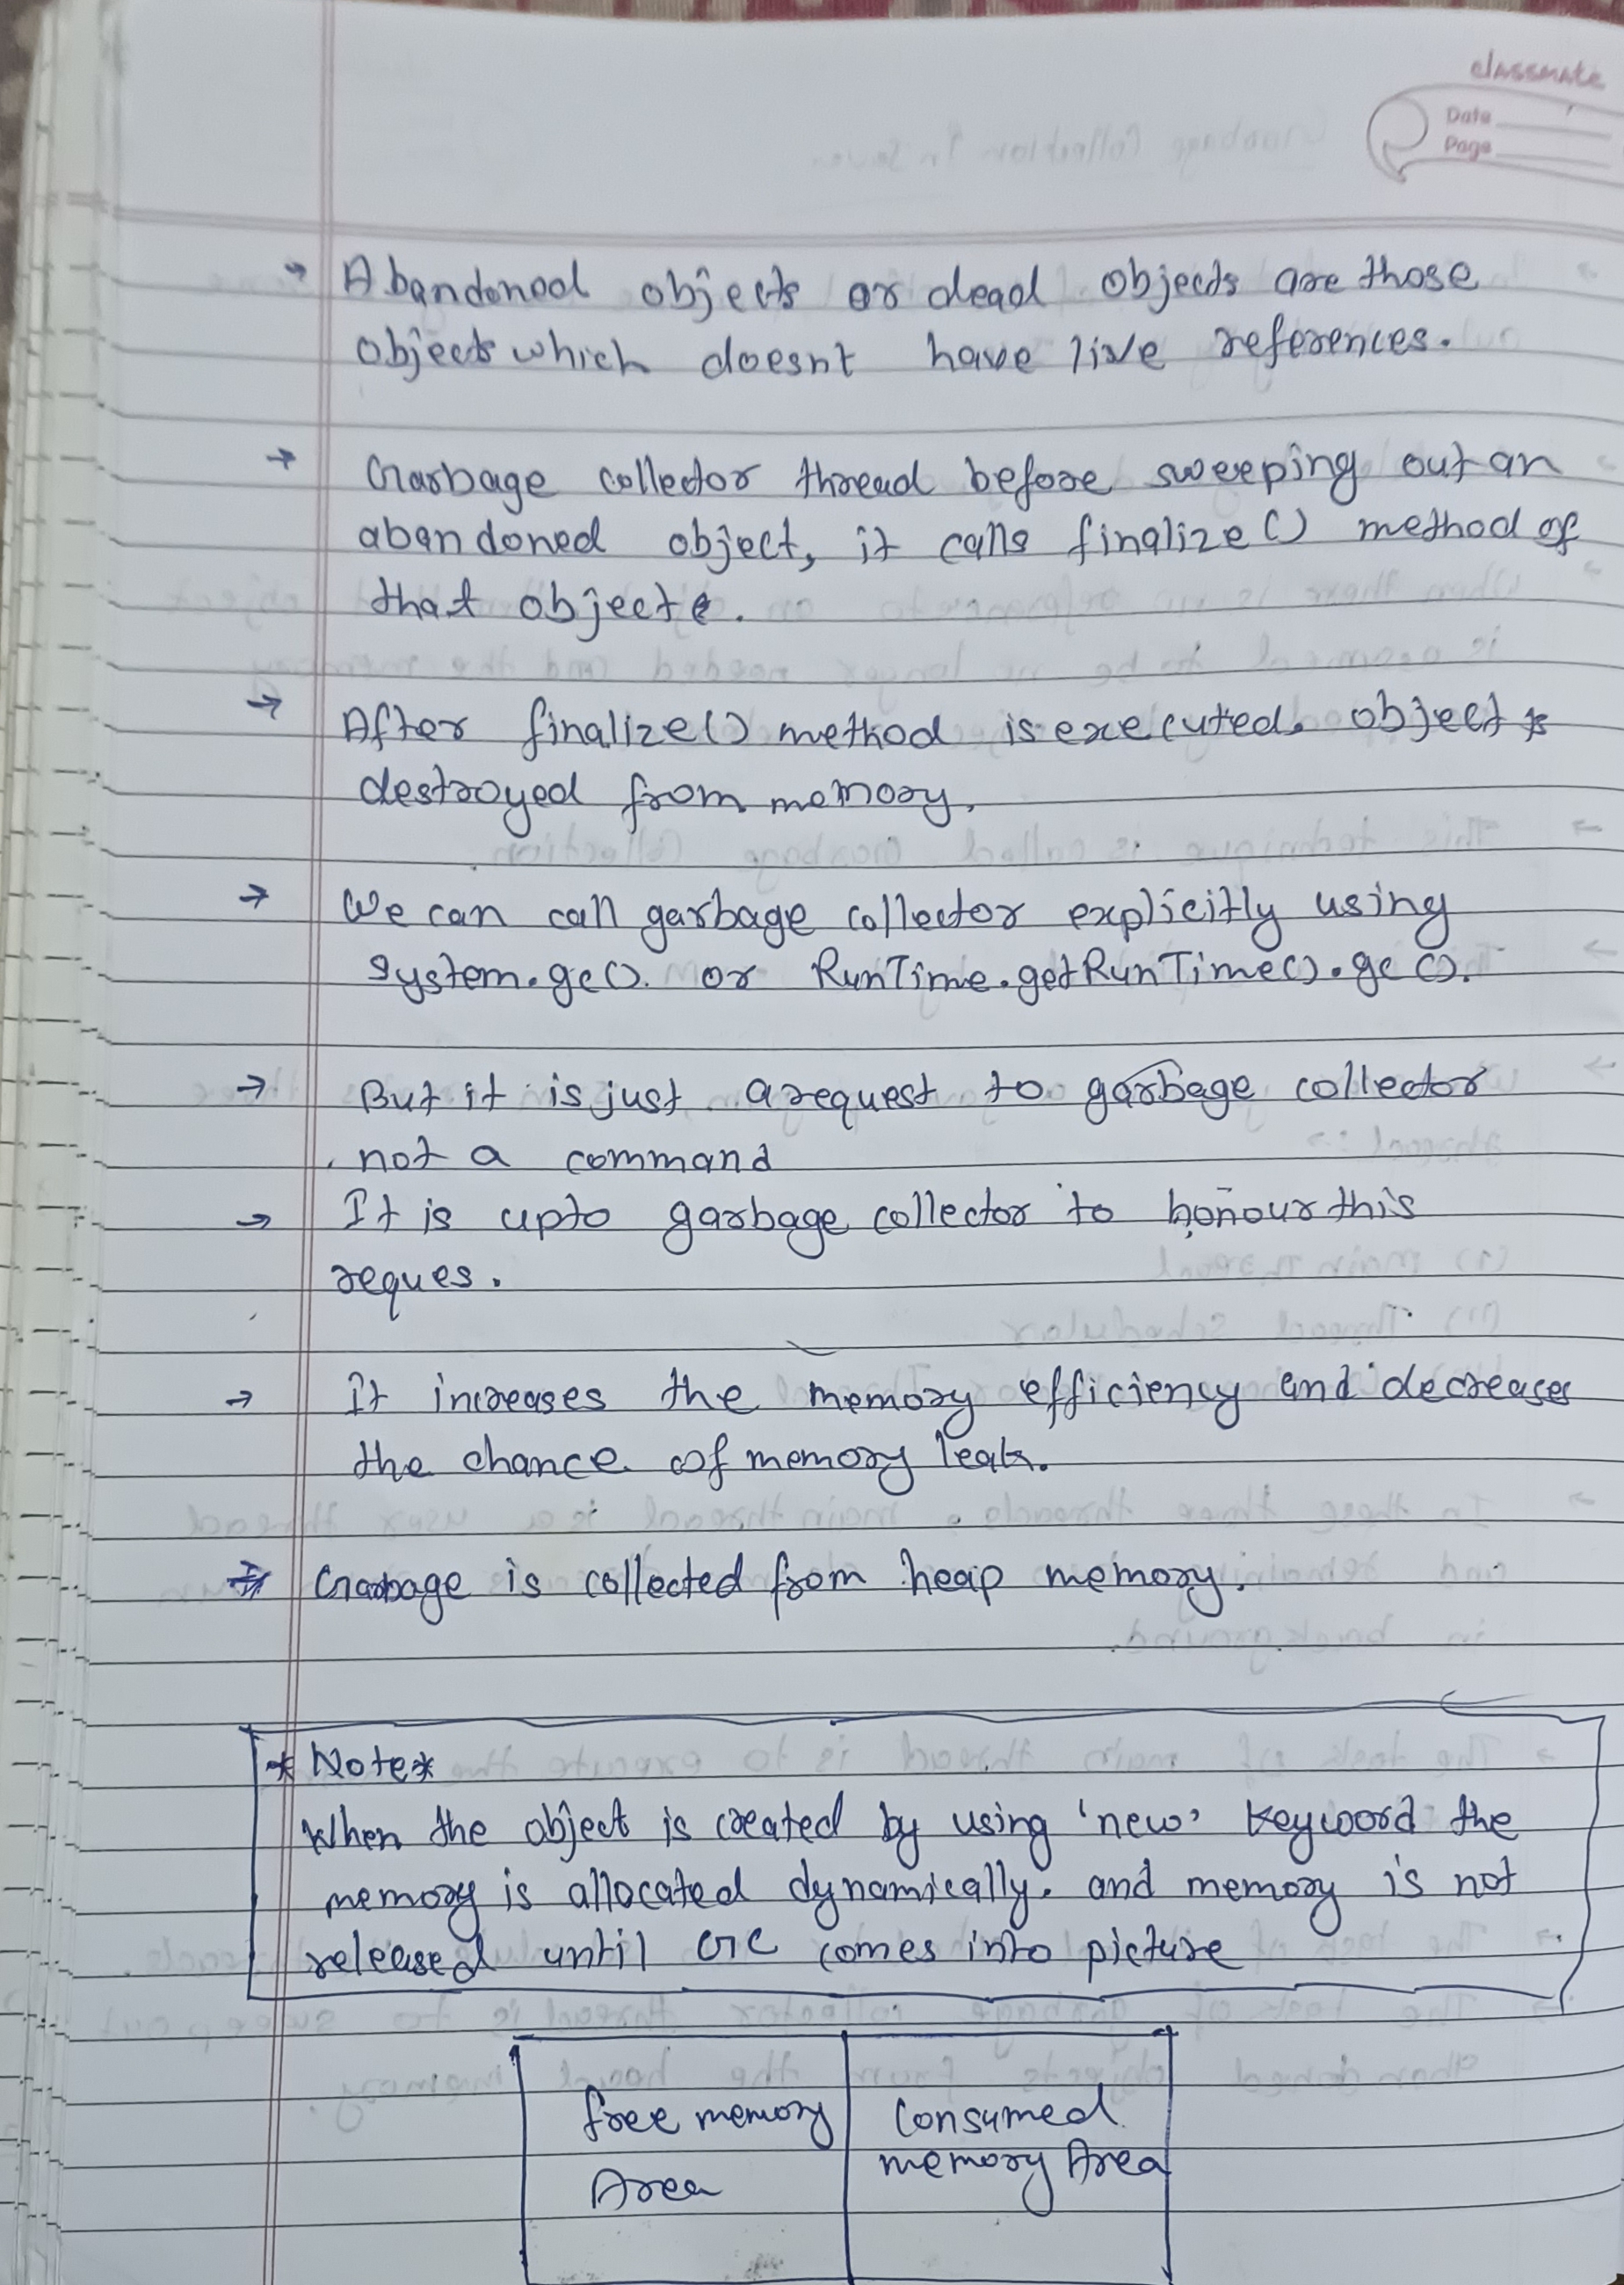 classmate
Date
Page
→ Abandoned objects or dead objects are those
objects which doesnt have live references.
→ Garbage collector thread before sweeping out an
abandoned object, it calls finalize() method of
that object.
→ After finalize() method is executed. object is
destroyed from memory.
→ We can call garbage collector explicitly using
System.gc(). or RunTime.getRunTime().gc().
→ But it is just a request to garbage collector
not a command
→ It is upto garbage collector to honour this
reques.
→ It increases the memory efficiency and decreases
the chance of memory leak.
→ Garbage is collected from heap memory.
*Note*
When the object is created by using 'new' keyword the
memory is allocated dynamically. and memory is not
released until GC comes into picture
free memory
Area
Consumed
memory Area